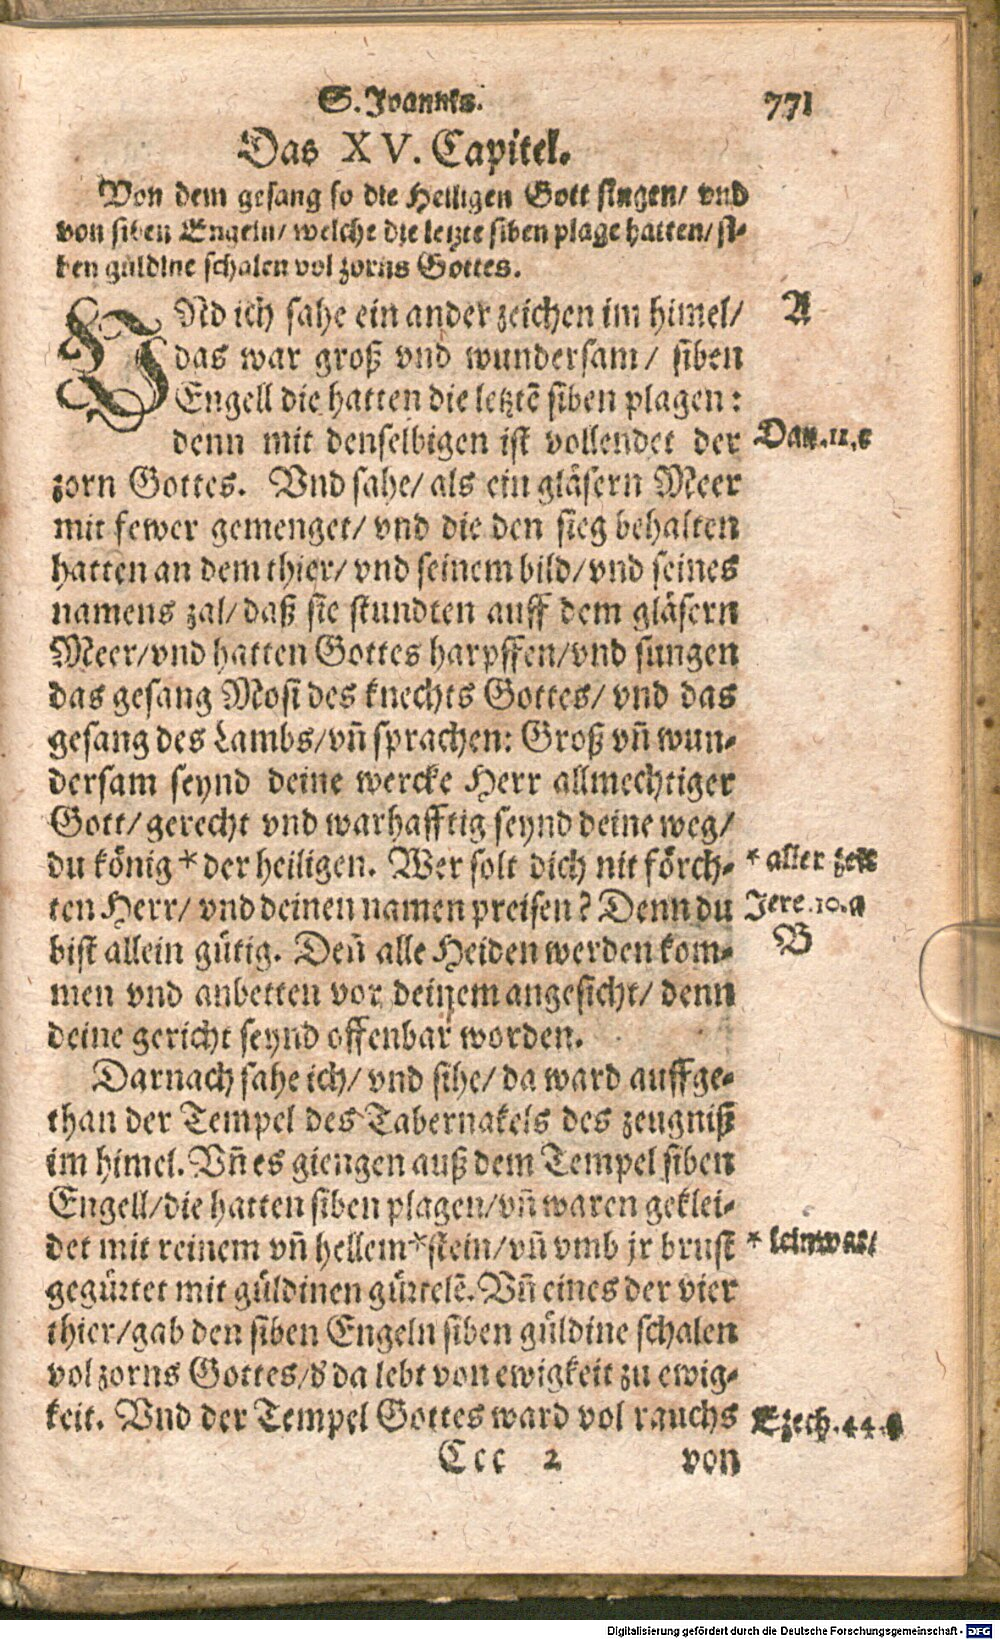 S. Joannis. 771
Das XV. Capitel.
Von dem gesang so die Heiligen Gott singen/ vnd
von siben Engeln/ welche die letzte siben plage hatten/ si-
ben güldine schalen vol zorns Gottes.
VNd ich sahe ein ander zeichen im himel/ A
das war groß vnd wundersam/ siben
Engell die hatten die letztē siben plagen:
denn mit denselbigen ist vollendet der Dan.11.c
zorn Gottes. Vnd sahe/ als ein gläsern Meer
mit fewer gemenget/ vnd die den sieg behalten
hatten an dem thier/ vnd seinem bild/ vnd seines
namens zal/ daß sie stundten auff dem gläsern
Meer/ vnd hatten Gottes harpffen/ vnd sungen
das gesang Mosi des knechts Gottes/ vnd das
gesang des Lambs/ vñ sprachen: Groß vñ wun-
dersam seynd deine wercke Herr allmechtiger
Gott/ gerecht vnd warhafftig seynd deine weg/
du könig * der heiligen. Wer solt dich nit förch- * aller zeit
ten Herr/ vnd deinen namen preisen? Denn du Jere.10.a
bist allein gütig. Deñ alle Heiden werden kom- B
men vnd anbetten vor deinem angesicht/ denn
deine gericht seynd offenbar worden.
Darnach sahe ich/ vnd sihe/ da ward auffge-
than der Tempel des Tabernakels des zeugniß
im himel. Vñ es giengen auß dem Tempel siben
Engell/ die hatten siben plagen/ vñ waren geklei-
det mit reinem vñ hellem * stein/ vñ vmb jr brust * leinwat/
gegürtet mit güldinen gürtelē. Vñ eines der vier
thier/ gab den siben Engeln siben güldine schalen
vol zorns Gottes/ d̕ da lebt von ewigkeit zu ewig-
keit. Vnd der Tempel Gottes ward vol rauchs Ezech.44.
Ccc 2 von
Digitalisierung gefördert durch die Deutsche Forschungsgemeinschaft - DFG